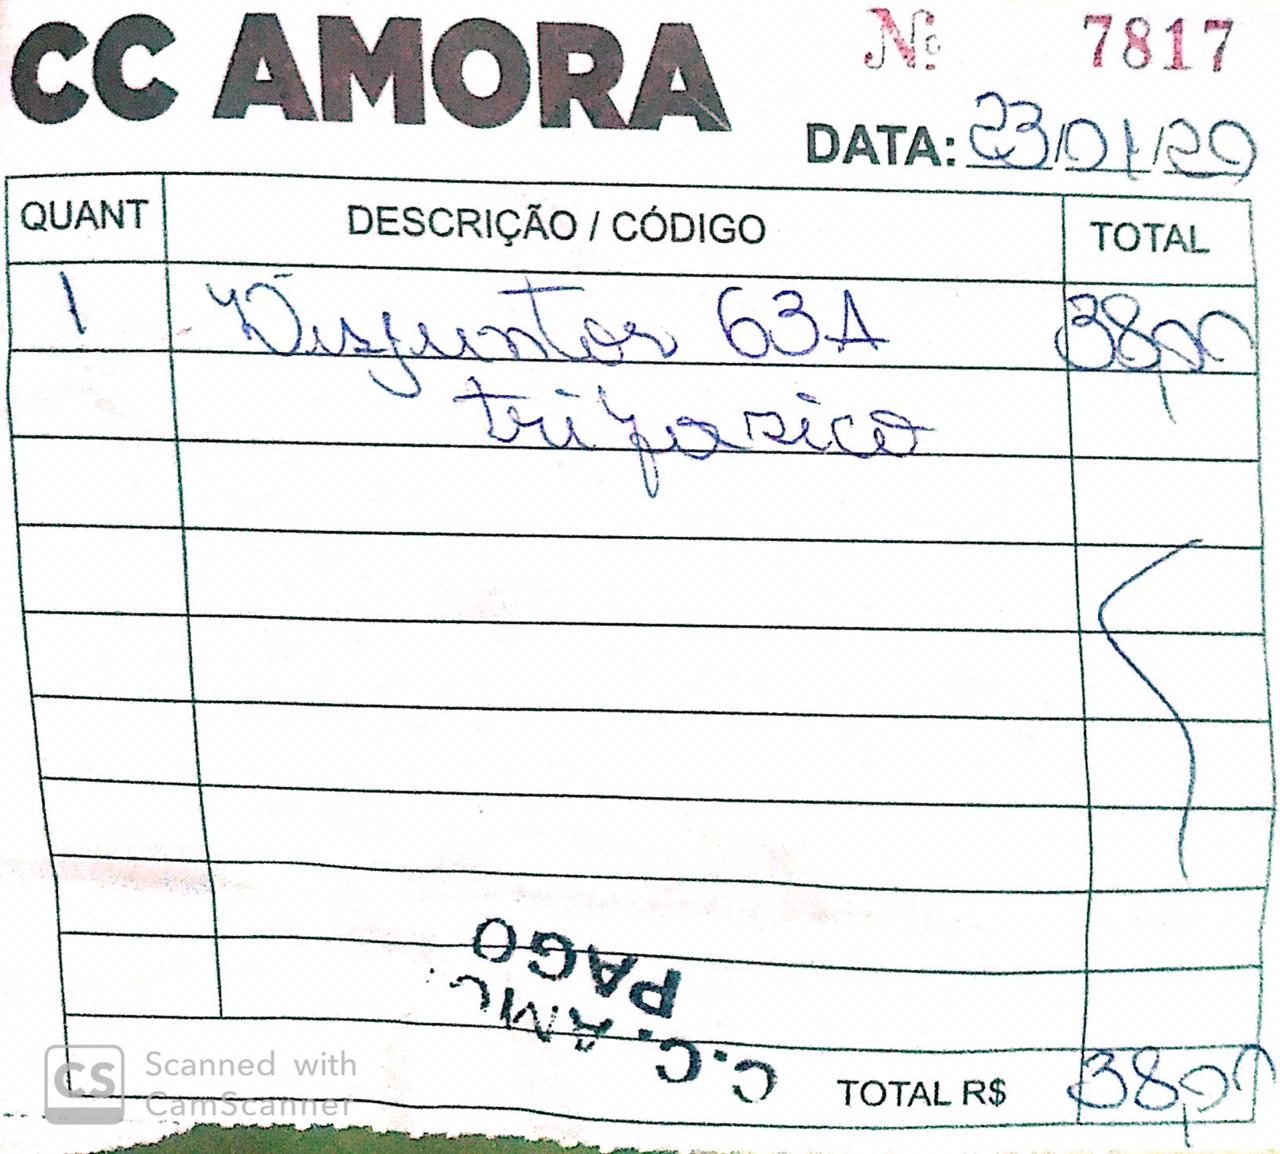 CC AMORA
Nº 7817
DATA: 23/01/20
QUANT DESCRIÇÃO / CÓDIGO TOTAL
1 Disjuntor 63A 38,00
trifasico
PAGO
C.C. AMO
TOTAL R$ 38,00
CS Scanned with
CamScanner